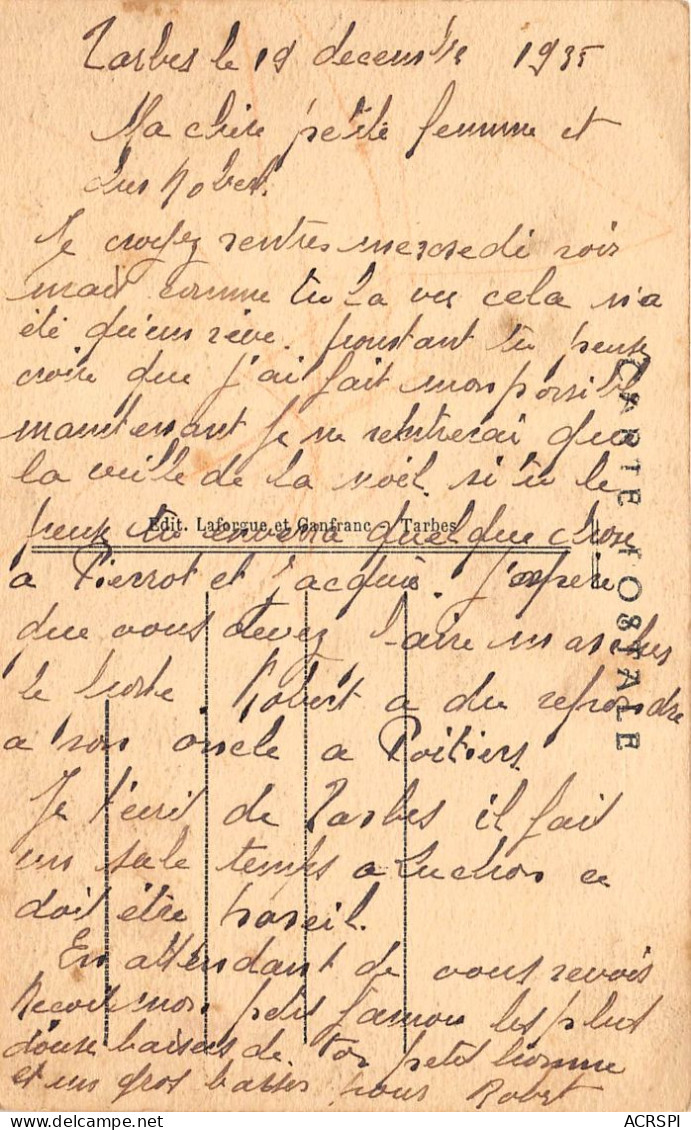 Tarbes le 19 decembre 1935
Ma chere petite femme et
Robert.
Je croyez rentres mercredi soir
mait comme tu la vu cela n'a
été qu'un rêve. pourtant tu peux
croire que j'ai fait mon possible
maintenant je ne rentrerai que
la veille de la noel. si tu le
peux tu enverra quelque chose
Edit. Laforgue et Canfranc - Tarbes
a Pierrot et Jacquie. J'espere
que vous devez faire marcher
le poste. Robert a du repondre
a son oncle a Poitiers.
CARTE POSTALE
Je t'ecrit de Tarbes il fait
un sale temps a Luchon ce
doit être pareil.
En attendant de vous revoir
Recoit mon petit t'amour les plus
douse baisers de ton petit homme
et un gros baiser pour Robert
ACRSPI